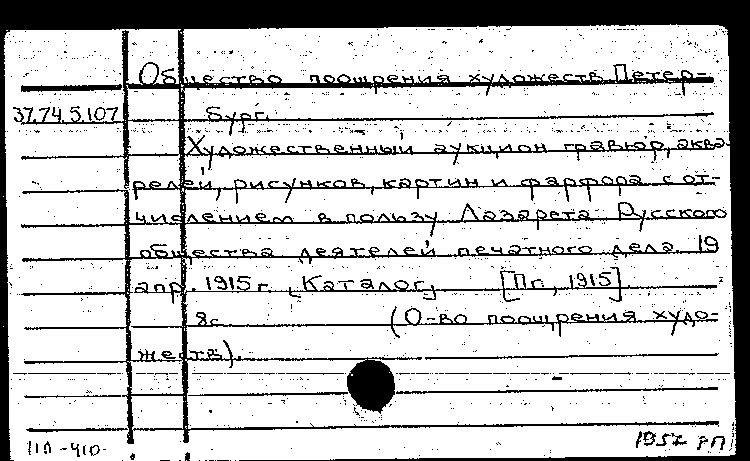 Общество поощрения художеств. Петер-
37.74.5.107 бург.
Художественный аукцион гравюр, аква-
релей, рисунков, картин и фарфора с от-
числением в пользу Лазарета Русского
общества деятелей печатного дела. 19
апр. 1915 г. [Каталог] [Пг., 1915].
8с. (О-во поощрения худо-
жеств).
1957 РП